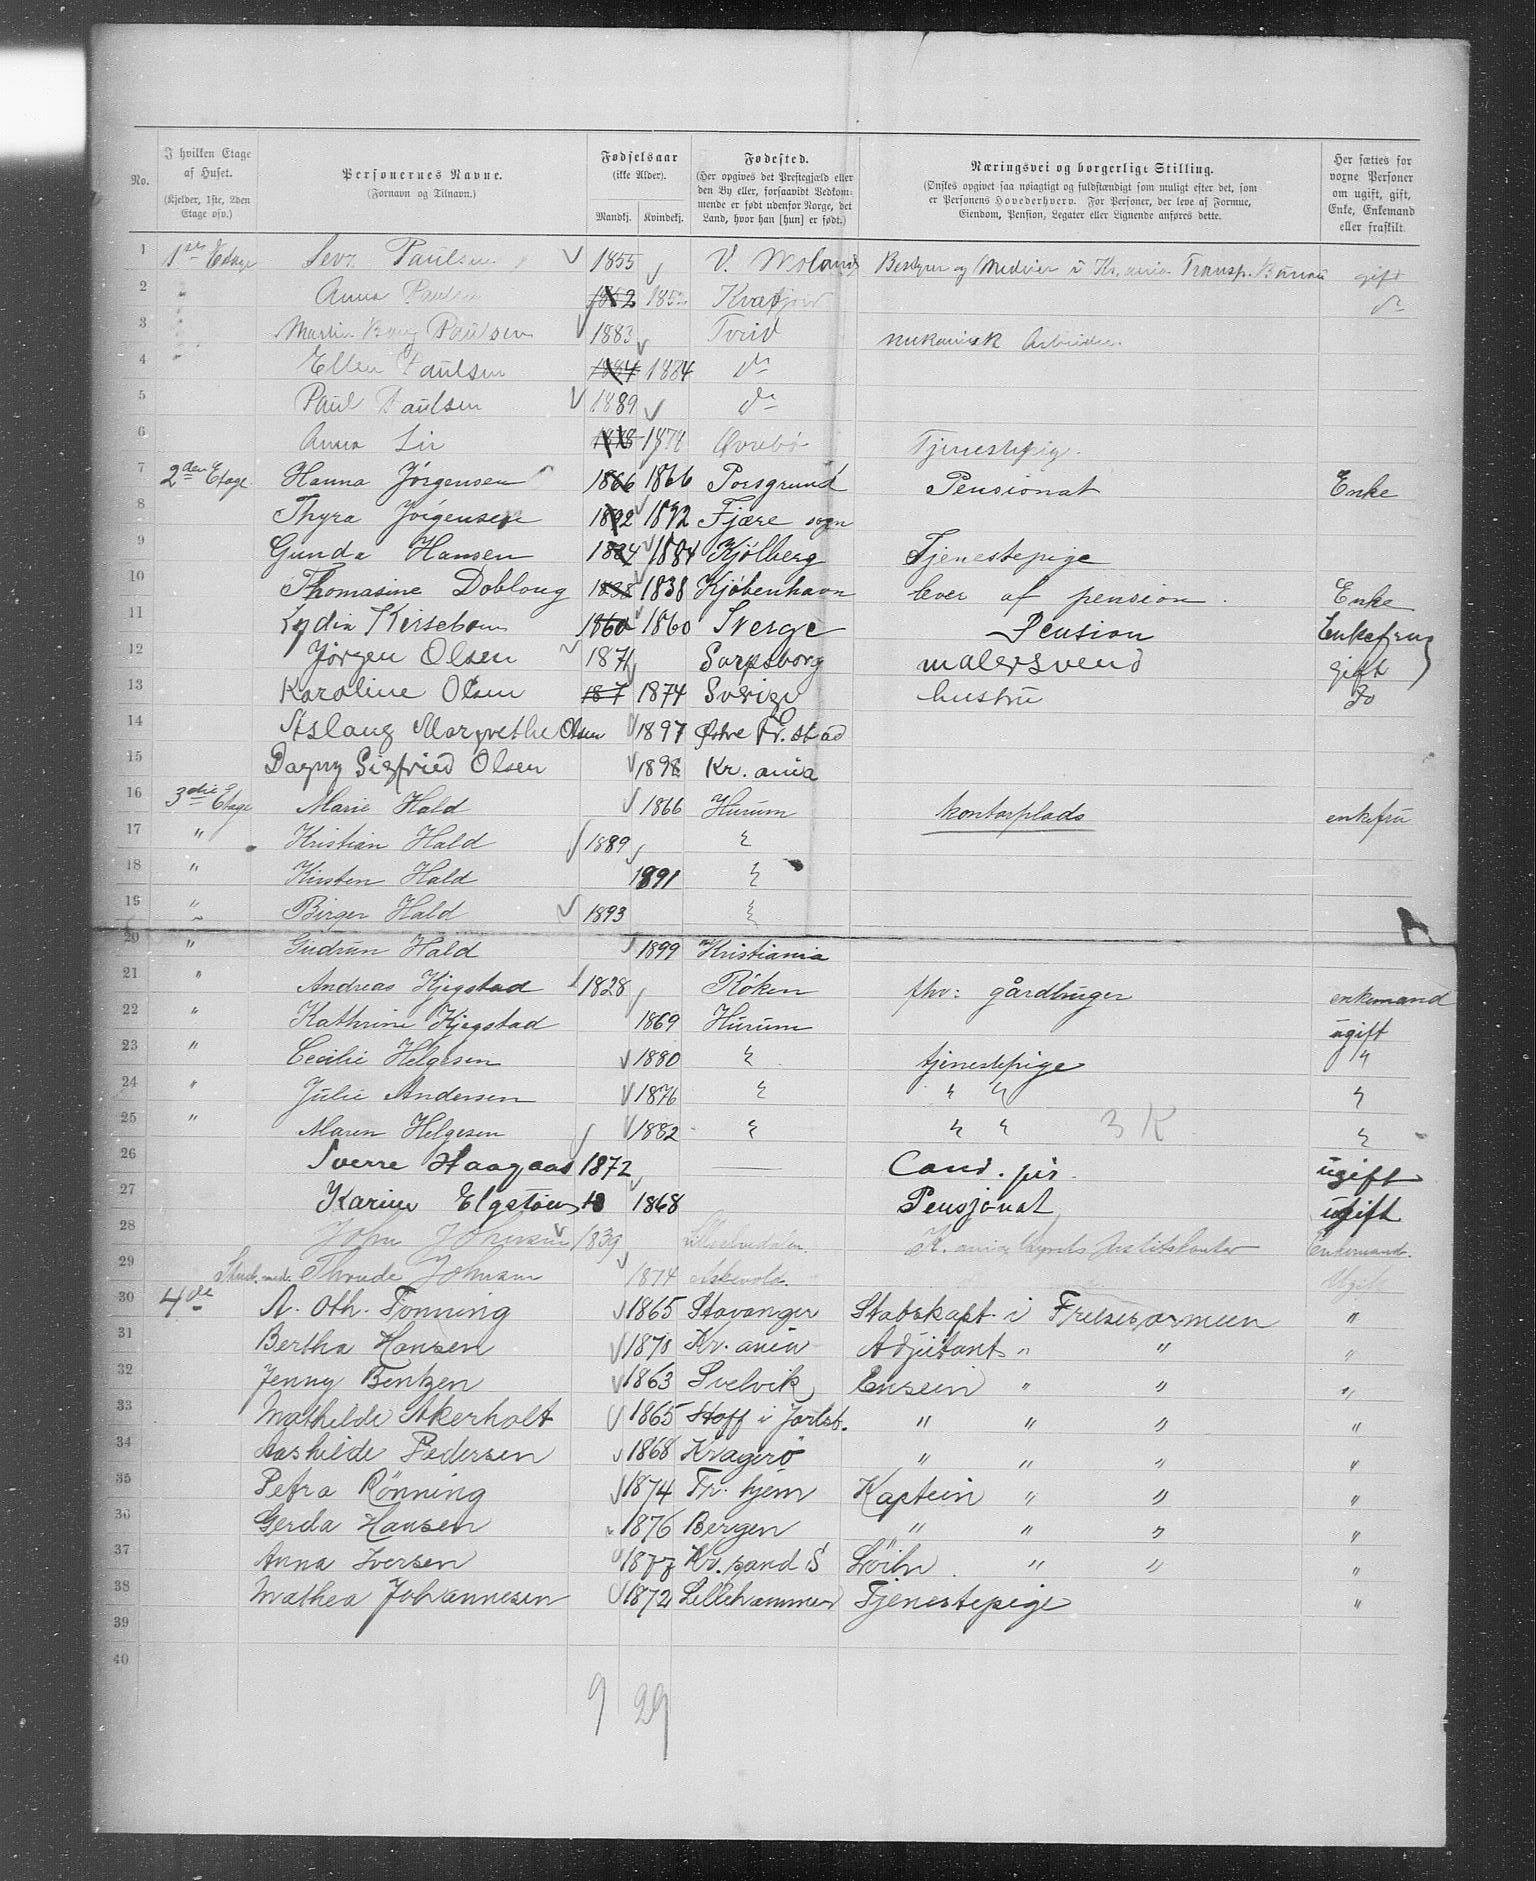 No.
I hvilken Etage af Huset. (Kjelder, 1ste, 2den Etage osv.)
Personernes Navne. (Fornavn og Tilnavn.)
Fødselsaar (ikke Alder). Mandkj. Kvindekj.
Fødested. (Her opgives det Prestegjæld eller den By eller, forsaavidt Vedkommende er født udenfor Norge, det Land, hvor han [hun] er født.)
Næringsvei og borgerlige Stilling. (Ønskes opgivet saa nøiagtigt og fuldstændigt som muligt efter det, som er Personens Hovederhverv. For Personer, der leve af Formue, Eiendom, Pension, Legater eller Lignende anføres dette.
Her sættes for voxne Personer om ugift, gift, Enke, Enkemand eller fraskilt.
1 1ste Etage Paulsen 1855 V. Moland Bestyrer og i Kr.ania Transp. gift
2 " Anna Paulsen 1862 Kvæfjord do
3 Martin Paulsen 1883 mekanisk Arbeider
4 Ellen Paulsen 1884 1884 do
5 Paul Paulsen 1889 do
6 Anna 1878 Øvrebø Tjenestepig.
7 2den Etage Hanna Jørgensen 1866 1866 Porsgrund Pensionat Enke
8 Thyra Jørgensen 1892 1892 Fjære sogn
9 Gunda Hansen 1884 1884 Kjølberg Tjenestepige
10 Thomasine Doblong 1838 1838 Kjøbenhavn lever af pension. Enke
11 Lydia Kirsebom 1860 1860 Sverge Pension Enkefrue
12 Jørgen Olsen 1871 Sarpsborg malersvend gift
13 Karoline Olsen 187 1874 Sverige hustru do
14 Aslaug Margrethe Olsen 1897 Østre Fr.stad
15 Dagny Sigfried Olsen 1898 Kr.ania
16 3die Etage Marie Hald 1866 Hurum kontorplads enkefru
17 " Kristian Hald 1889 "
18 " Kirsten Hald 1891 "
19 " Birger Hald 1893 "
20 " Gudrun Hald 1899 Kristiania
21 " Andreas Kjegstad 1828 Røken fhv: gårdbruger enkemand
22 " Kathrine Kjegstad 1869 Hurum ugift
23 " Cecilie Helgesen 1880 " tjenestepige "
24 " Julie Andersen 1876 " " " "
25 " Maren Helgesen 1882 " " " 3 K "
26 Sverre Haagaas 1872 — Cand. jur. ugift
27 Karine Elgstøen 18 1868 Pensjonat ugift
28 John Johnsen 1839 Lilleelvedalen Kr.ania Enkemand.
29 Stud. med. Thrude Johnsen 1874 Askevold. Ugift
30 4de A. Oth. Tonning 1865 Stavanger Stabskapt. i Frelsesarmeen "
31 Bertha Hansen 1870 Kr.ania Adjutant " " "
32 Jenny Bentzen 1863 Svelvik Ensein " " "
33 Mathilde Akerholt 1865 Stoff i Jarlsb. " " " "
34 Aashilde Pedersen 1868 Kragerö " " " "
35 Petra Rønning 1874 Tr. hjem Kaptein " " "
36 Gerda Hansen 1876 Bergen " " " "
37 Anna Iversen 1877 Kr.sand S Löitn. " " "
38 Mathea Johannesen 1872 Lillehammer Tjenestepige "
39
40
9 29